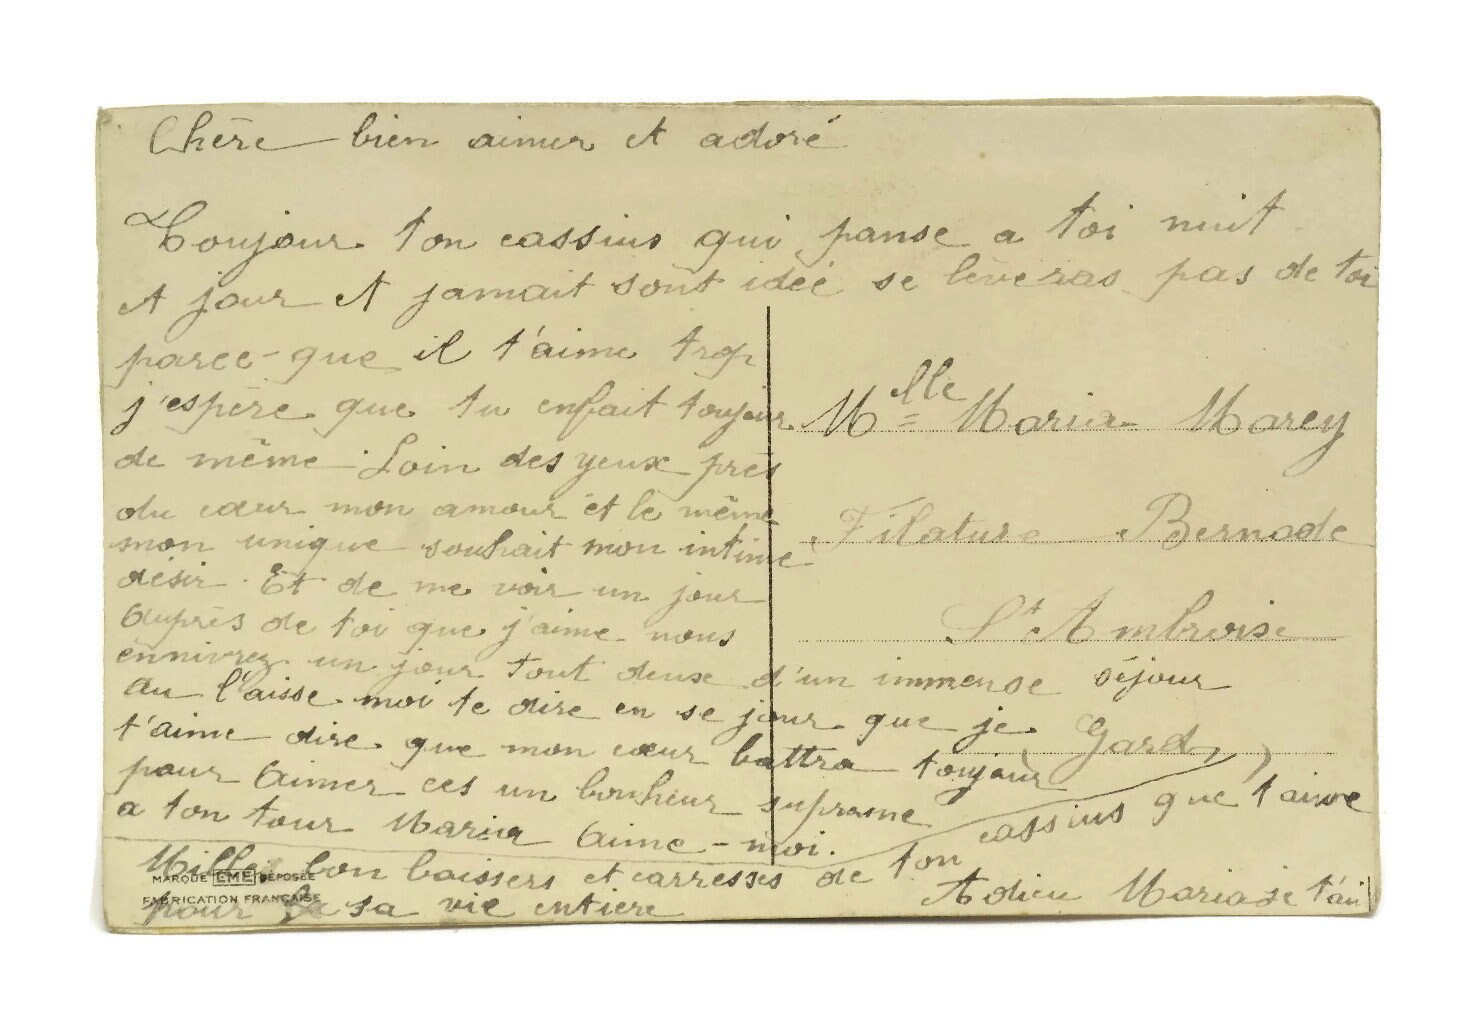 Chère bien aimer et adoré
Toujour ton cassius qui panse a toi nuit
et jour et jamait sont idée se lèveras pas de toi
parce-que il t'aime trop
j'espère que tu enfait toujour
de même. Loin des yeux près
du cœur mon amour ét le même
mon unique souhait mon intime
désir. Et de me voir un jour
auprès de toi que j'aime nous
énnivrez un jour tout deux d'un immense séjour
au l'aisse moi te dire en se jour que je
t'aime dire que mon cœur battra toujour
pour aimer ces un bonheur suprame
a ton tour Maria aime-moi.
Mille bon baissers et carresses de ton cassius que t'aime
pour sa vie entiere
Adieu Maria je t'ai
Mlle Maria Marey
Filature Bernade
St Ambroise
(Gard)
MARQUE EME DÉPOSÉE
FABRICATION FRANÇAISE